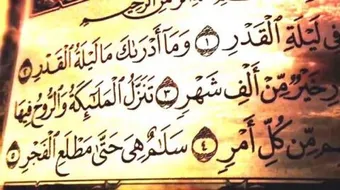 الرحيم
في لَيْلَةِ الْقَدْرِ ١ وَمَا أَدْرَىٰكَ مَا لَيْلَةُ الْقَدْرِ ٢
خَيْرٌ مِّنْ أَلْفِ شَهْرٍ ٣ تَنَزَّلُ الْمَلَٰٓئِكَةُ وَالرُّوحُ فِيهَا
مِّن كُلِّ أَمْرٍ ٤ سَلَٰمٌ هِيَ حَتَّىٰ مَطْلَعِ الْفَجْرِ ٥